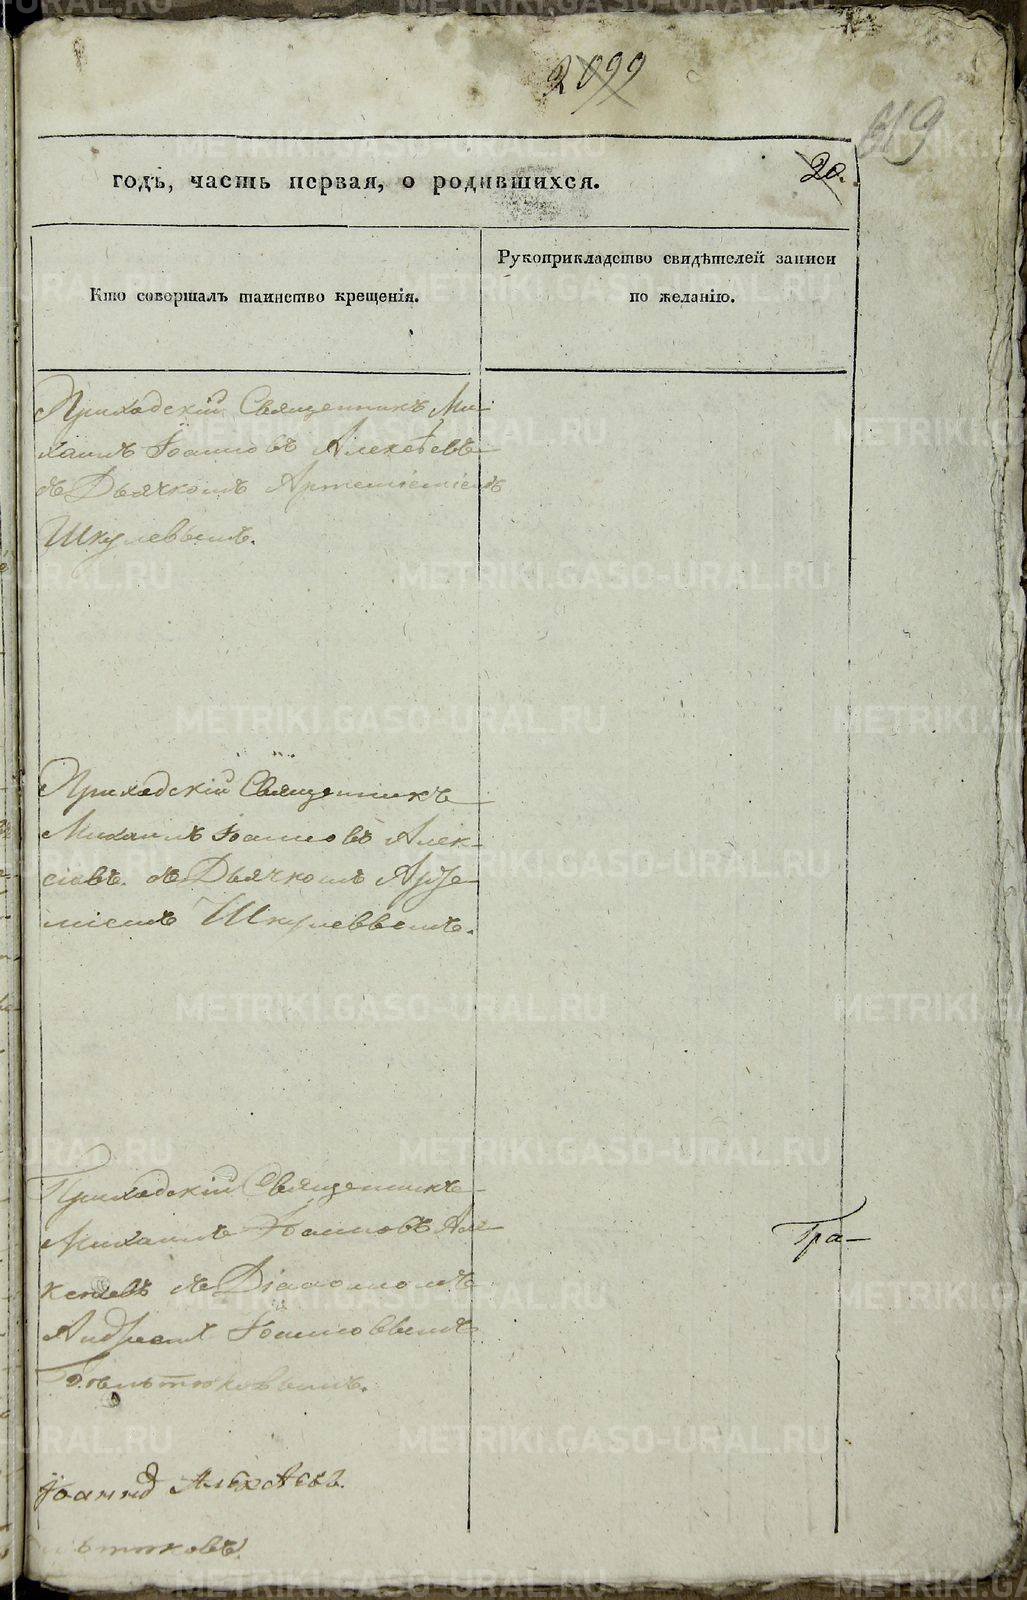 2099
619
годъ, часть первая, о родившихся.
20.
Кто совершалъ таинство крещенія.
Рукоприкладство свидѣтелей записи
по желанію.
Приходскій Священникъ Ми-
хаилъ Іоанновъ Алексѣевъ
съ Дьячкомъ Артеміемъ
Шкулевымъ.
Приходскій Священникъ
Михаилъ Іоанновъ Алек-
сіевъ съ Дьячкомъ Арте-
міемъ Шкулеввымъ.
Приходскій Священникъ
Михаилъ Іоанновъ Але-
ксіевъ съ Діакономъ
Андреемъ Іоанноввымъ
Іоаннъ Алексѣевъ.
Гра-
METRIKI.GASO-URAL.RU